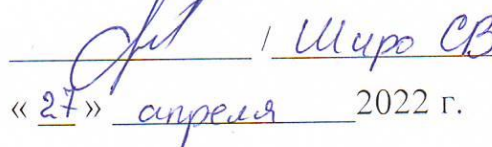 / Широ СВ
« 27 » апреля 2022 г.